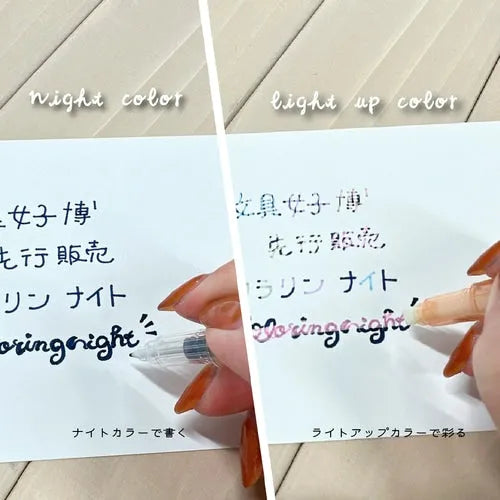 night color
具女子博
先行販売
ラリン ナイト
oringnight
ナイトカラーで書く
light up color
文具女子博
先行販売
カラリン ナイト
Coloringnight
ライトアップカラーで彩る